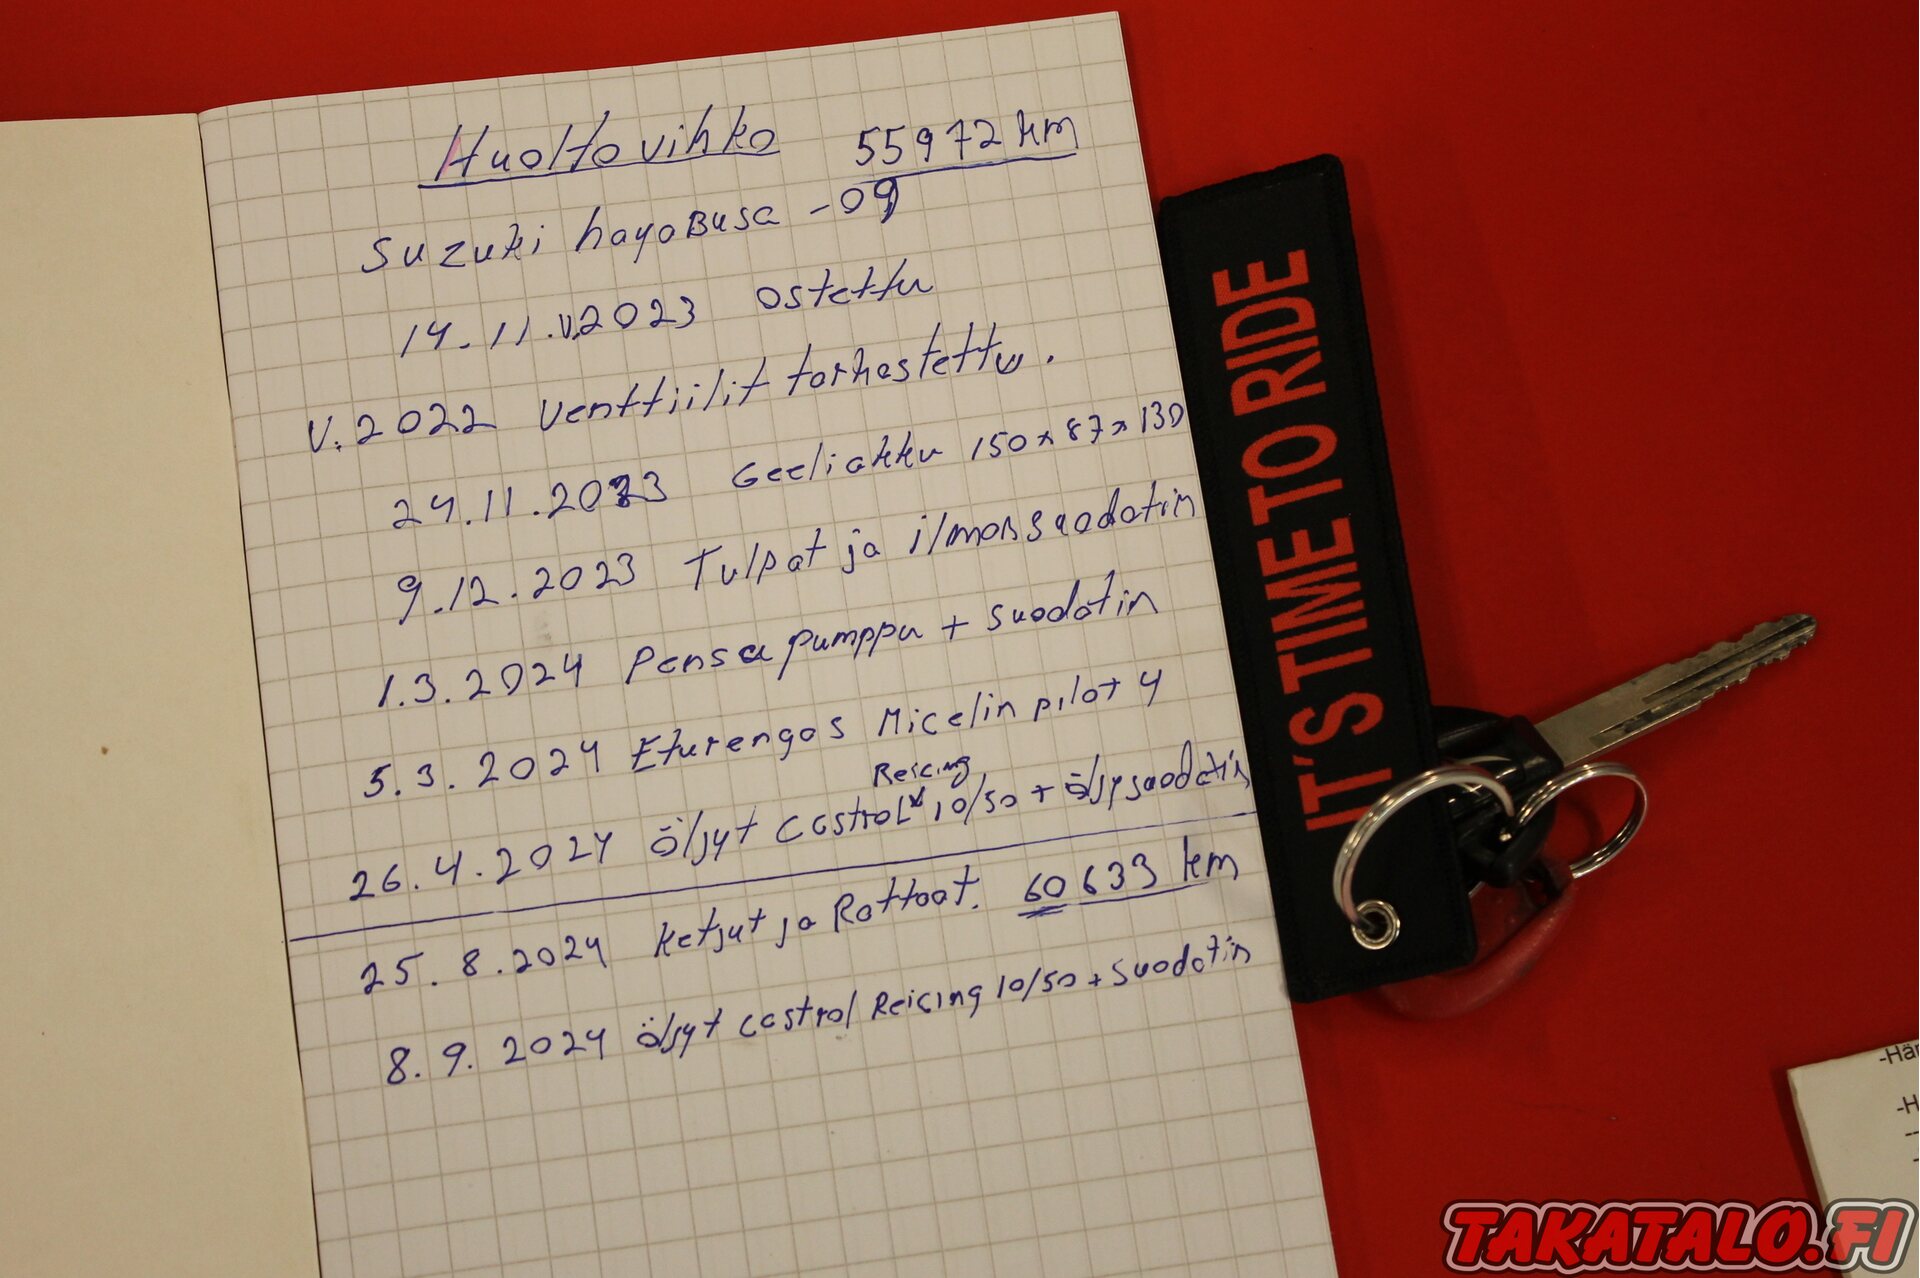 Huoltovihko 55972 km
Suzuki hayaBusa -09
14.11.v.2023 Ostettu
V.2022 Venttiilit tarkastettu.
24.11.2023 Geeliakku 150x87x130
9.12.2023 Tulpat ja ilmansuodatin
1.3.2024 Pensapumppu + Suodatin
5.3.2024 Eturengas Micelin pilot 4
Reicing
26.4.2024 Öljyt Castrol 10/50 + Öljysuodatin
25.8.2024 Ketjut ja Rattaat. 60633 km
8.9.2024 Öljyt Castrol Reicing 10/50 + Suodatin
IT'S TIME TO RIDE
-Här
-H
TAKATALO.FI